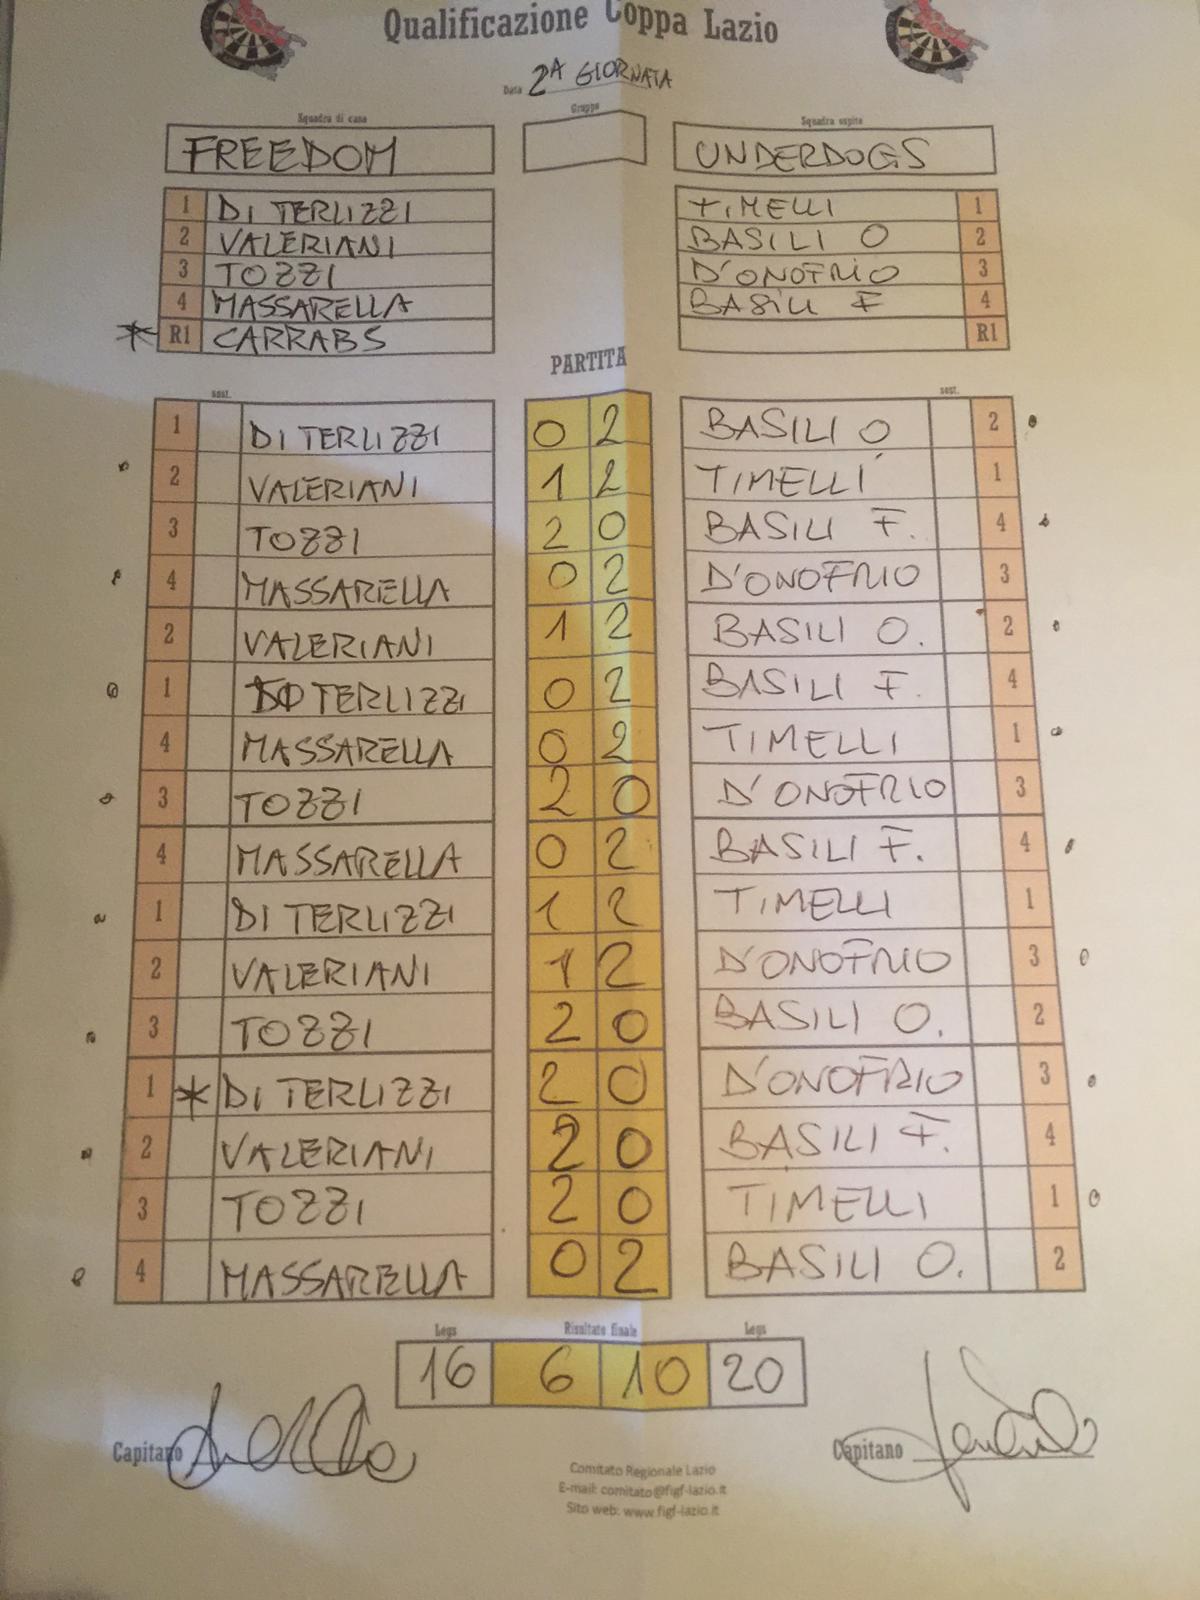 Qualificazione Coppa Lazio
Data 2A GIORNATA
Squadra di casa Gruppo Squadra ospite
FREEDOM UNDERDOGS
1 DI TERLIZZI TIMELLI 1
2 VALERIANI BASILI O 2
3 TOZZI D'ONOFRIO 3
4 MASSARELLA BASILI F 4
* R1 CARRABS R1
PARTITA
sost. sost.
1 DI TERLIZZI 0 2 BASILI O 2
2 VALERIANI 1 2 TIMELLI 1
3 TOZZI 2 0 BASILI F. 4
4 MASSARELLA 0 2 D'ONOFRIO 3
2 VALERIANI 1 2 BASILI O. 2
1 DI TERLIZZI 0 2 BASILI F. 4
4 MASSARELLA 0 2 TIMELLI 1
3 TOZZI 2 0 D'ONOFRIO 3
4 MASSARELLA 0 2 BASILI F. 4
1 DI TERLIZZI 1 2 TIMELLI 1
2 VALERIANI 1 2 D'ONOFRIO 3
3 TOZZI 2 0 BASILI O. 2
1 * DI TERLIZZI 2 0 D'ONOFRIO 3
2 VALERIANI 2 0 BASILI F. 4
3 TOZZI 2 0 TIMELLI 1
4 MASSARELLA 0 2 BASILI O. 2
Legs Risultato finale Legs
16 6 10 20
Capitano Capitano
Comitato Regionale Lazio
E-mail: comitato@figf-lazio.it
Sito web: www.figf-lazio.it